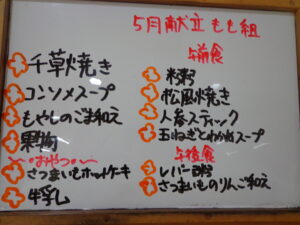 5月献立 もも組
千草焼き
コンソメスープ
もやしのごま和え
果物
〜おやつ〜
さつまいもホットケーキ
牛乳
午前食
粥
松風焼き
人参スティック
玉ねぎとわかめスープ
午後食
レバー粥
さつまいものりんご和え